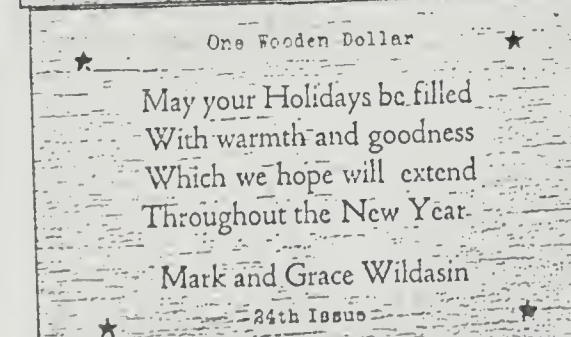 One Wooden Dollar
May your Holidays be filled
With warmth and goodness
Which we hope will extend
Throughout the New Year
Mark and Grace Wildasin
24th Issue